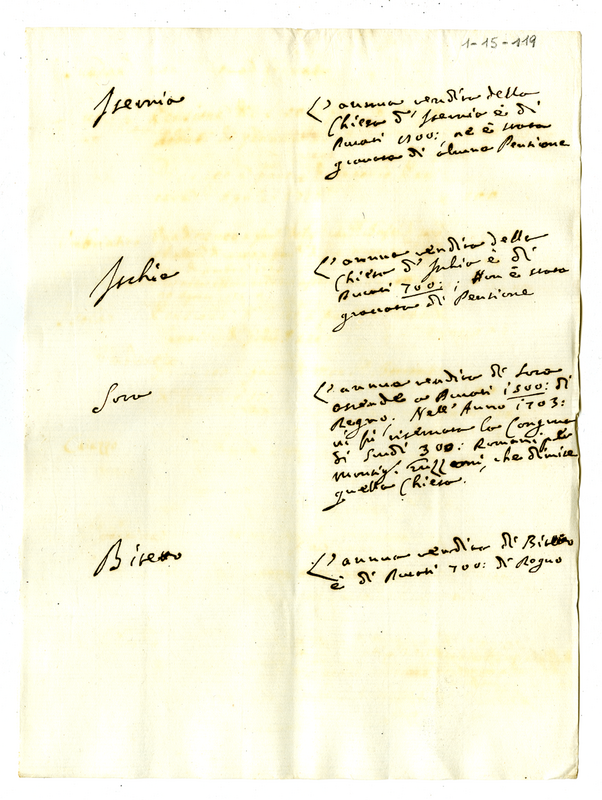 1-15-119
Isernia
L'annua rendita della
Chiesa d'Isernia è di
Ducati 1500: ne è stata
gravata di alcuna Pensione
Ischia
L'annua rendita della
Chiesa d'Ischia è di
Ducati 700: ; Non è stata
gravata di Pensione
Sora
L'annua rendita di Sora
ascende a Ducati 1500: di
Regno. Nell'Anno 1703:
vi fù riservata la Congrua
di Scudi 300: Romani
Monsig. che dimise
quella Chiesa.
Bisetto
L'annua rendita di Bisetto
è di Ducati 700: di Regno